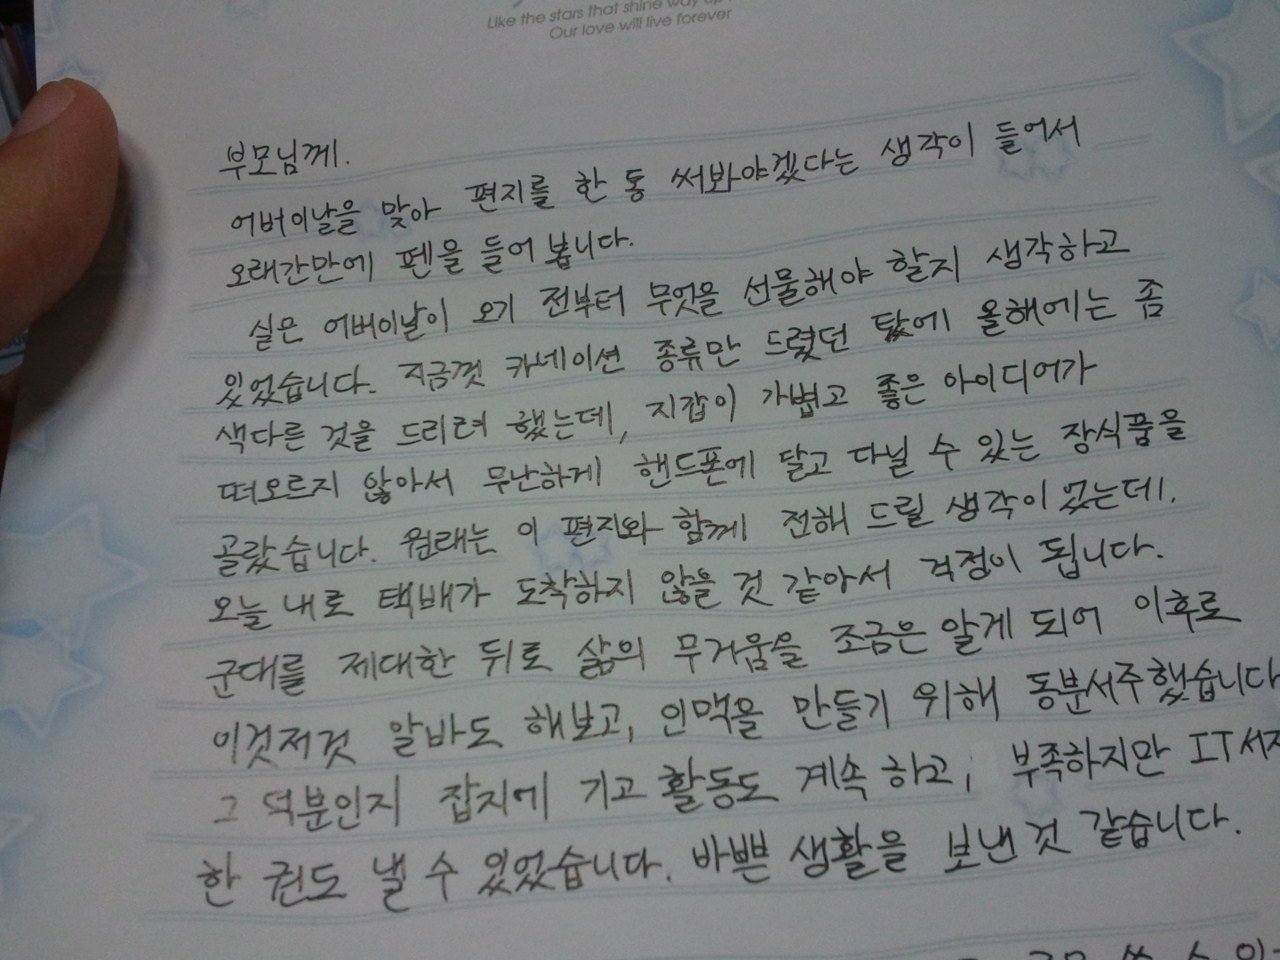 Like the stars that shine way up
Our love will live forever
부모님께.
어버이날을 맞아 편지를 한 통 써봐야겠다는 생각이 들어서
오래간만에 펜을 들어 봅니다.
실은 어버이날이 오기 전부터 무엇을 선물해야 할지 생각하고
있었습니다. 지금껏 카네이션 종류만 드렸던 탓에 올해에는 좀
색다른 것을 드리려 했는데, 지갑이 가볍고 좋은 아이디어가
떠오르지 않아서 무난하게 핸드폰에 달고 다닐 수 있는 장식품을
골랐습니다. 원래는 이 편지와 함께 전해 드릴 생각이었는데,
오늘 내로 택배가 도착하지 않을 것 같아서 걱정이 됩니다.
군대를 제대한 뒤로 삶의 무거움을 조금은 알게 되어 이후로
이것저것 알바도 해보고, 인맥을 만들기 위해 동분서주했습니다
그 덕분인지 잡지에 기고 활동도 계속 하고, 부족하지만 IT서적
한 권도 낼 수 있었습니다. 바쁜 생활을 보낸 것 같습니다.